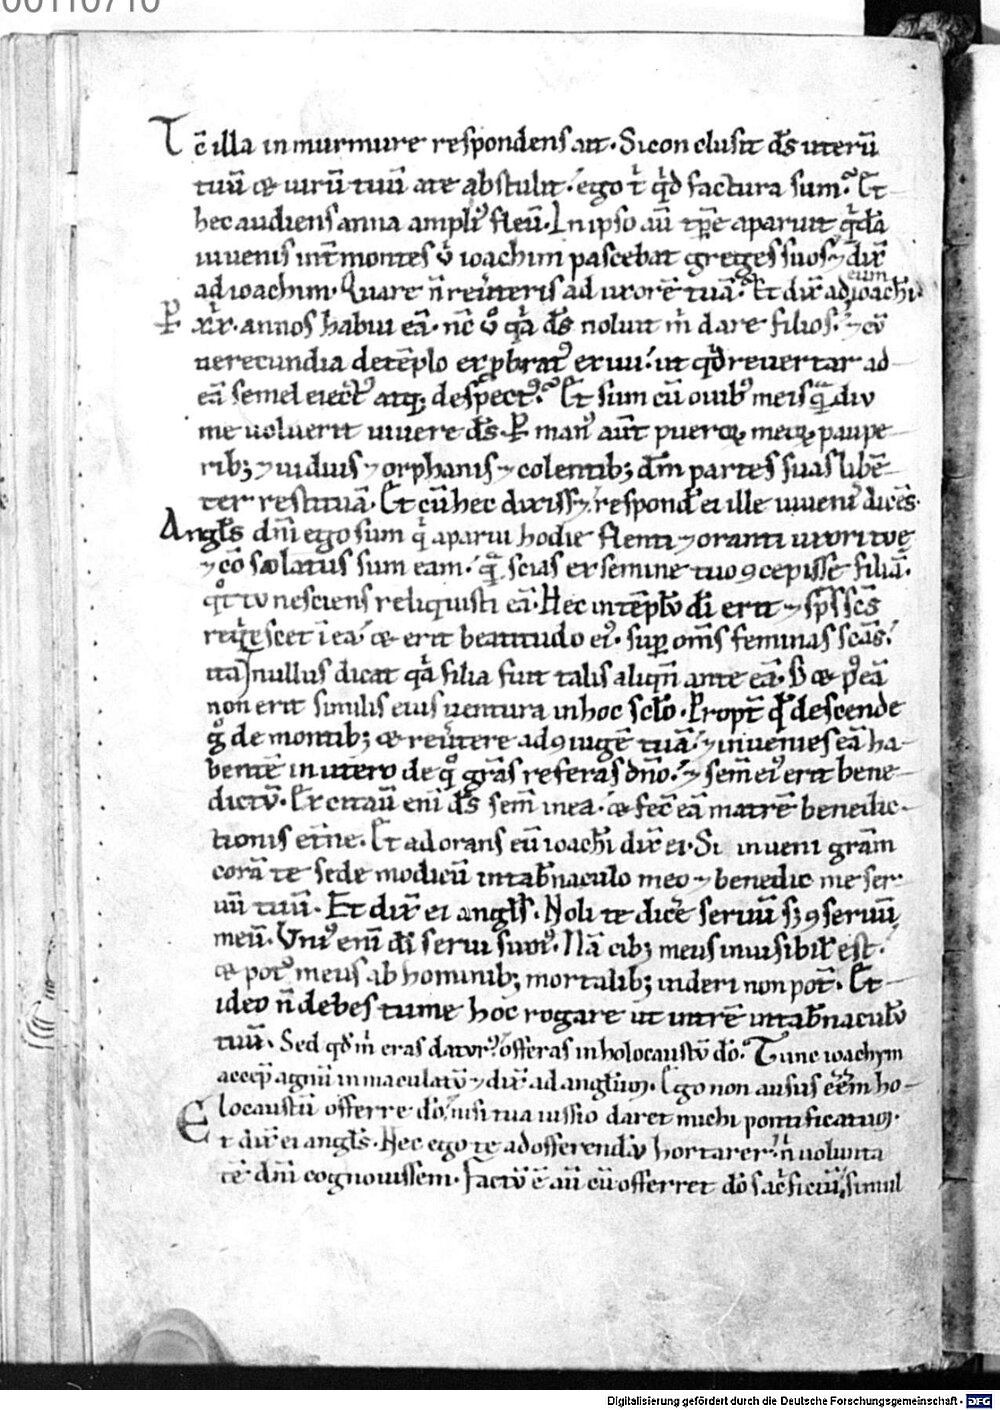 00110710
Tc̄ illa in murmure respondens ait. Si con clusit d̄s uterū
tuū & uirū tuū a te abstulit. ego t̄ quid factura sum. Et
hec audiens anna ampli᷒ fleu̅. In ipso aū tp̄e aparuit q̇dā
iuuenis int̄ montes u̇ ioachim pascebat greges suos ⁊ dix̄
ad ioachim. Quare n̄ reu̇teris ad uxorē tuā. Et dix̄ ad eum ioachī.
P̱ xx. annos habui eā. nc̄ u̇ q̇a d̄s noluit m̄ dare filios. ⁊ cū
uerecundia de tēplo exꝓbrat᷒ exiui. ut qd̄ reuertar ad
eā semel eiect᷒ atq; despect᷒. Et sum cū ouib᷒ meis quādiu
me uoluerit uiuere d̄s. P̱ man᷒ aūt pueroꝝ meoꝝ paupe
rib; ⁊ uiduis ⁊ orphanis ⁊ colentib; dm̄ partes suas libē
ter restituā. Et cū hec dixiss; respond̄ ei ille iuuenis dicēs.
Angl̄s dn̄i ego sum q̇ aparui hodie flenti ⁊ oranti uxori tuę
⁊ cō solatus sum eam. q̄ scias ex semine tuo ꝯcepisse filiā.
q̇ tu nesciens reliquisti eā. Hec in tēplo di̅ erit ⁊ sp̄s sc̄s
reqescet ī ea. & erit beatitudo ei᷒ sup̱ om̄s feminas scās.
ita nullus dicat q̇a filia fuit talis aliqn̄ ante eā. S; & p᷒ eā
non erit similis eius uentura in hoc sclo. Propt̄ qd̄ descende
g̊ de montib; & reu̇tere ad ꝯiugē tuā. ⁊ inuenies eā ha-
bentē in utero de q̊ grās referas dn̄o. ⁊ sem̄ ei᷒ erit bene-
dictū. Excitau̅ eni̅ d̄s sem̄ in ea. & fec̄ eā matrē benedic-
tionis et̄ne. Et adorans eū ioachī dix̄ ei. Si inueni gram̄
corā te sede modicū in tab̄naculo meo ⁊ benedic me ser-
uū tuū. Et dix̄ ei angl̄s. Noli te dic̄e seruū s; ꝯseruū
meū. Vni᷒ eni̅ di̅ serui sum᷒. Nā cib; meus inuisibil̄ est.
& pot᷒ meus ab hominib; mortalib; uideri non pot̄. Et
ideo n̄ debes tu me hoc rogare ut intrē in tab̄naculū
tuū. Sed qd̄ m̄ eras datur᷒ offeras in holocaustū dō. Tunc ioachym
accep̄ agnū inmaculatū ⁊ dix̄ ad anglum. Ego non ausus eēm ho-
locaustū offerre dō, nisi tua iussio daret michi pontificatum.
Et dix̄ ei angl̄s. Nec ego te ad offerendū hortarer. n̄ uolunta
tē dn̄i cognouissem. Factū ē aū cū offerret dō sac̄ficiū, simul
Digitalisierung gefördert durch die Deutsche Forschungsgemeinschaft - DFG